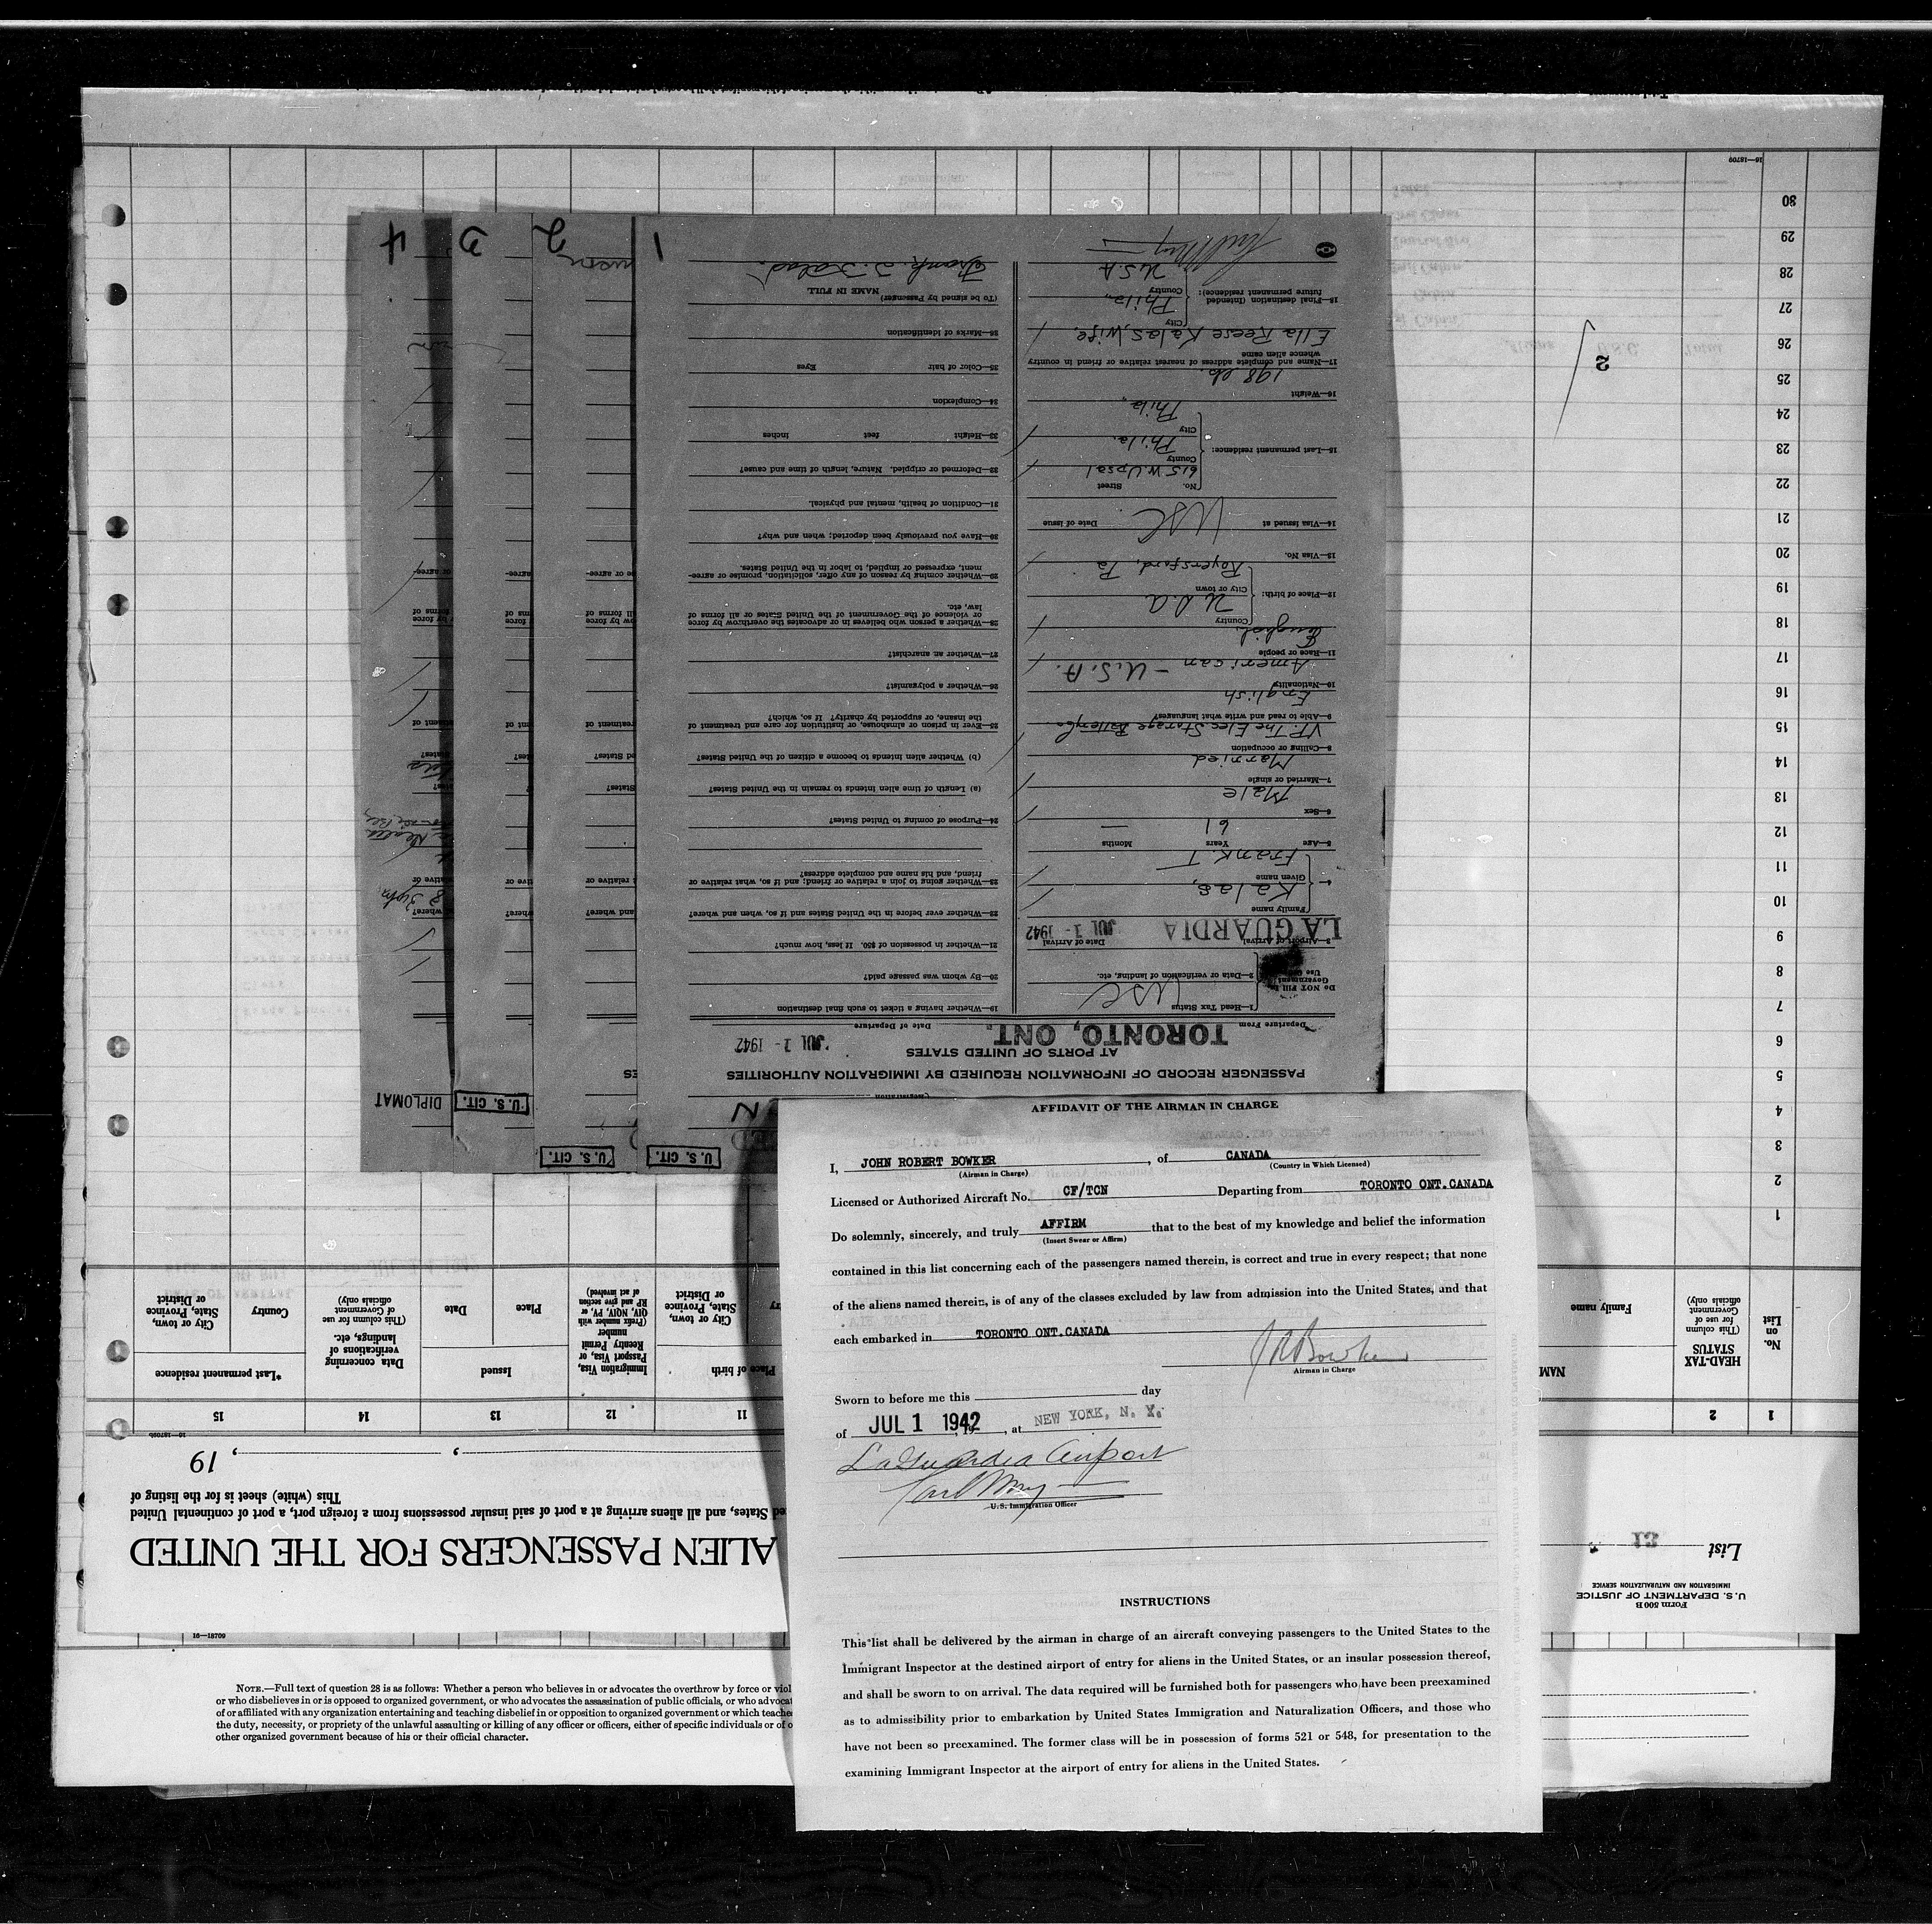 AFFIDAVIT OF THE AIRMAN IN CHARGE
I, JOHN ROBERT BOWKER, of CANADA
(Airman in Charge) (Country in Which Licensed)
Licensed or Authorized Aircraft No. CF/TCN Departing from TORONTO ONT.CANADA
Do solemnly, sincerely, and truly AFFIRM that to the best of my knowledge and belief the information
(Insert Swear or Affirm)
contained in this list concerning each of the passengers named therein, is correct and true in every respect; that none
of the aliens named therein, is of any of the classes excluded by law from admission into the United States, and that
each embarked in TORONTO ONT.CANADA
J R Bowker
Airman in Charge
Sworn to before me this day
of JUL 1 1942, 19, at NEW YORK, N. Y.
LaGuardia Airport
U.S. Immigration Officer
INSTRUCTIONS
This list shall be delivered by the airman in charge of an aircraft conveying passengers to the United States to the
Immigrant Inspector at the destined airport of entry for aliens in the United States, or an insular possession thereof,
and shall be sworn to on arrival. The data required will be furnished both for passengers who have been preexamined
as to admissibility prior to embarkation by United States Immigration and Naturalization Officers, and those who
have not been so preexamined. The former class will be in possession of forms 521 or 548, for presentation to the
examining Immigrant Inspector at the airport of entry for aliens in the United States.
16—18709
NOTE.—Full text of question 28 is as follows: Whether a person who believes in or advocates the overthrow by force or viol
or who disbelieves in or is opposed to organized government, or who advocates the assassination of public officials, or who advocat
of or affiliated with any organization entertaining and teaching disbelief in or opposition to organized government or which teache
the duty, necessity, or propriety of the unlawful assaulting or killing of any officer or officers, either of specific individuals or of o
other organized government because of his or their official character.
U. S. CIT.
U. S. CIT.
U. S. CIT.
DIPLOMAT
PASSENGER RECORD OF INFORMATION REQUIRED BY IMMIGRATION AUTHORITIES
AT PORTS OF UNITED STATES
Departure From TORONTO, ONT. Date of Departure JUL 1 - 1942
Do NOT Fill In
Government
Use Only
1—Head Tax Status USC
2—Data or verification of landing, etc.
3—Airport of Arrival LA GUARDIA Date of Arrival JUL 1 - 1942
4— Family name Kalas,
Given name Frank. T
5—Age Years 61 Months —
6—Sex Male
7—Married or single Married
8—Calling or occupation V.P. The Elec Storage Battery Co
9—Able to read and write what languages? English
10—Nationality American - U.S.A.
11—Race or people English
12—Place of birth: Country U.S.A.
City or town Royersford, Pa
13—Visa No.
14—Visa issued at USC. Date of issue
15—Last permanent residence: No. Street 615 W Upsal
County Phila.
City Phila,
16—Weight 198 lb.
17—Name and complete address of nearest relative or friend in country
whence alien came Ella Reese Kalas, wife,
18—Final destination (Intended
future permanent residence): City Phila,
Country U.S.A
19—Whether having a ticket to such final destination
20—By whom was passage paid?
21—Whether in possession of $50. If less, how much?
22—Whether ever before in the United States and if so, when and where?
23—Whether going to join a relative or friend; and if so, what relative or
friend, and his name and complete address?
24—Purpose of coming to United States?
(a) Length of time alien intends to remain in the United States?
(b) Whether alien intends to become a citizen of the United States?
25—Ever in prison or almshouse, or institution for care and treatment of
the insane, or supported by charity? If so, which?
26—Whether a polygamist?
27—Whether an anarchist?
28—Whether a person who believes in or advocates the overthrow by force
or violence of the Government of the United States or all forms of
law, etc.
29—Whether coming by reason of any offer, solicitation, promise or agree-
ment, expressed or implied, to labor in the United States.
30—Have you previously been deported; when and why?
31—Condition of health, mental and physical.
32—Deformed or crippled. Nature, length of time and cause?
33—Height feet inches
34—Complexion
35—Color of hair Eyes
36—Marks of Identification
(To be signed by Passenger)
NAME IN FULL
Frank. T. Kalas
1
2
3
4
Form 500 B
U. S. DEPARTMENT OF JUSTICE
IMMIGRATION AND NATURALIZATION SERVICE
List 13
ALIEN PASSENGERS FOR THE UNITED
ed States, and all aliens arriving at a port of said insular possessions from a foreign port, a port of continental United
This (white) sheet is for the listing of
, , 19
16—18709b
1 2 11 12 13 14 15
No.
on
List
HEAD-TAX
STATUS
(This column
for use of
Government
officials only)
NAM
Family name
Place of birth
ry
City or town,
State, Province
or District
Immigration Visa,
Passport Visa, or
Reentry Permit
number
(Prefix number with
QIV, NQIV, PV, or
RP and give section
of act involved)
Issued
Place
Date
Data concerning
verifications of
landings, etc.
(This column for use
of Government
officials only)
*Last permanent residence
Country
City or town,
State, Province
or District
1
2
3
4
5
6
7
8
9
10
11
12
13
14
15
16
17
18
19
20
21
22
23
24
25
26
27
28
29
30
2
16—18709